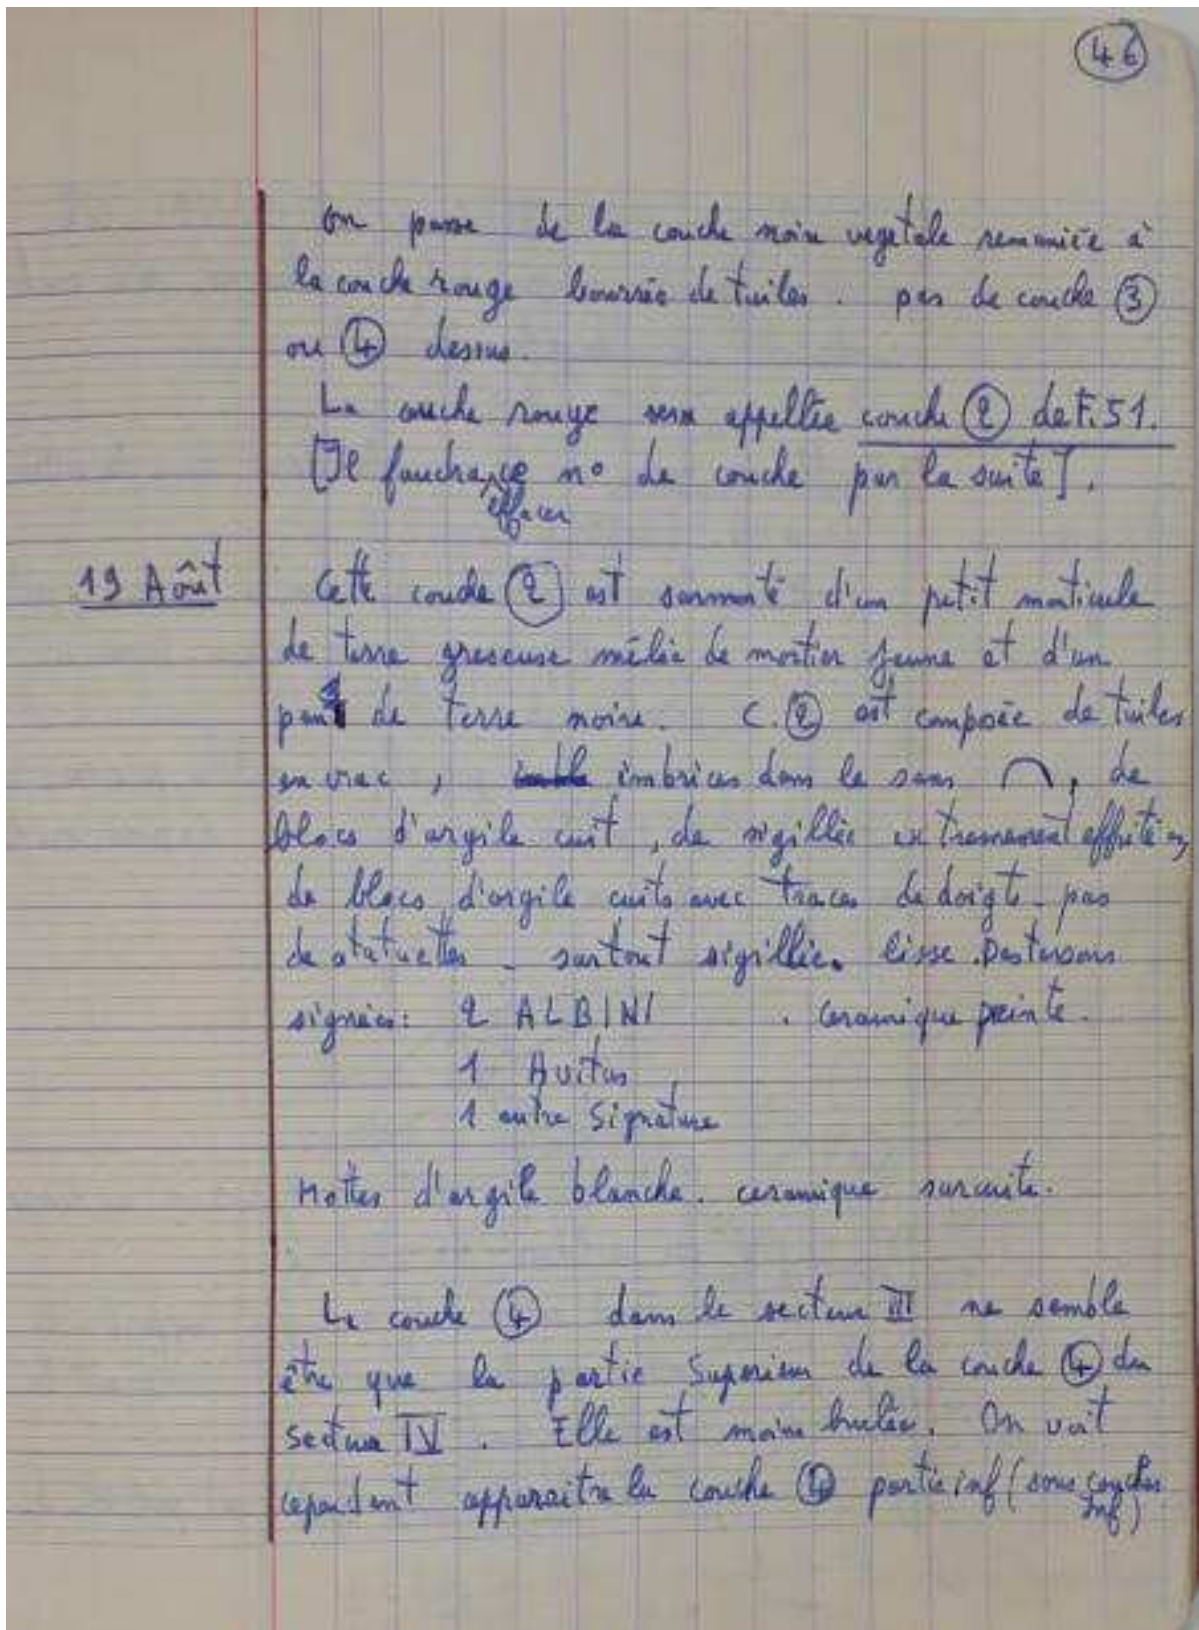 46
On passe de la couche noire vegetale remaniée à
la couche rouge bourrée de tuiles. pas de couche ③
ou ④ dessus.
La couche rouge sera appellée couche ② de F.51.
[Il faudra ce n° de couche par la suite].
effacer
19 Août
Cette couche ② est surmonté d'un petit monticule
de terre greseuse mélée de mortier jaune et d'un
peu de terre noire. C.② est composée de tuiles
en vrac, imbrices dans le sens ⌒, de
blocs d'argile cuit, de sigillée extremement
de blocs d'argile cuits avec traces de doigts - pas
de statuettes - surtout sigillée. lisse. Des tessons
signées: 2 ALBINI . ceramique peinte.
1 Avitus
1 autre Signature
Mottes d'argile blanche. ceramique surcuite.
La couche ④ dans le secteur III ne semble
être que la partie Superieur de la couche ④ du
secteur IV. Elle est moins brulée. On voit
cependant apparaitre la couche ④ partie inf (sous couches
inf)